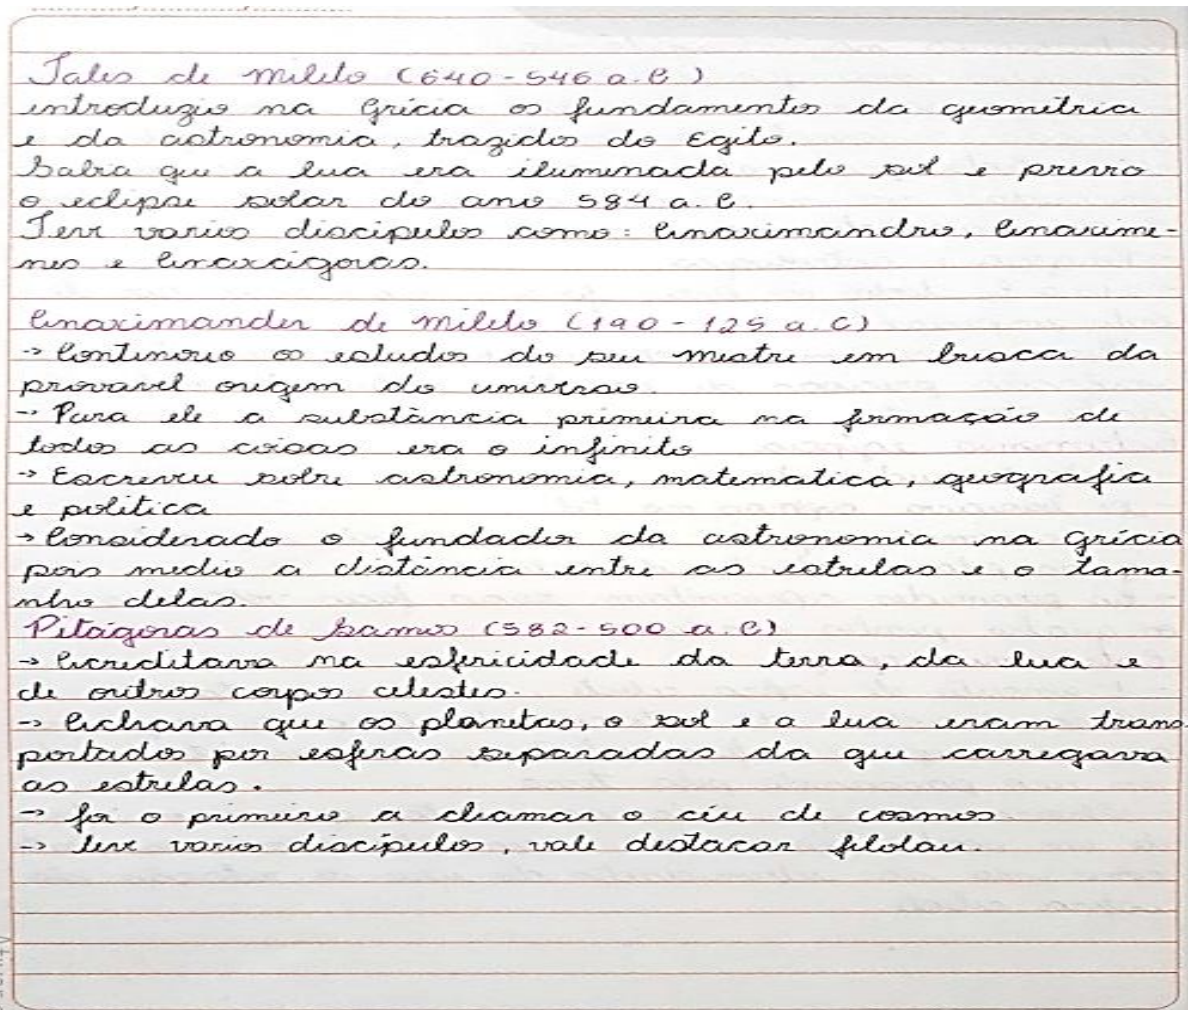 Tales de mileto (640-546 a.C)
introduzio na Grécia os fundamentos da geometria
e da astronomia, trazidos do Egito.
Sabia que a lua era iluminada pelo sol e previo
o eclipse solar do ano 584 a.C.
Teve varios discipulos como: Anaximandro, Anaxime-
nes e Anaxágoras.
Anaximander de mileto (190-125 a.C)
→ Continouo os estudos do seu mestre em busca da
provavel origem do universo.
→ Para ele a substância primeira na formação de
todos as coisas era o infinito
→ Escreveu sobre astronomia, matematica, geografia
e politica
→ Considerado o fundador da astronomia na Grécia
pois medio a distância entre as estrelas e o tama-
nho delas.
Pitágoras de Samos (582-500 a.C)
→ Acreditava na esfericidade da terra, da lua e
de outros corpos celestes.
→ Achava que os planetas, o sol e a lua eram trans
portados por esferas separadas da que carregava
as estrelas.
→ foi o primeiro a chamar o céu de cosmos
→ teve varios discípulos, vale destacar filolau.